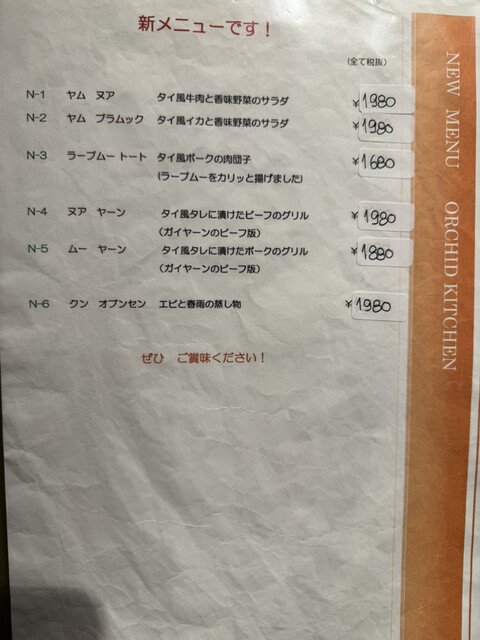 新メニューです！
（全て税抜）
N-1 ヤム ヌア タイ風牛肉と香味野菜のサラダ ¥1980
N-2 ヤム プラムック タイ風イカと香味野菜のサラダ ¥1980
N-3 ラープムー トート タイ風ポークの肉団子 ¥1680
(ラープムーをカリッと揚げました)
N-4 ヌア ヤーン タイ風タレに漬けたビーフのグリル ¥1980
(ガイヤーンのビーフ版)
N-5 ムー ヤーン タイ風タレに漬けたポークのグリル ¥1880
(ガイヤーンのビーフ版)
N-6 クン オプンセン エビと春雨の蒸し物 ¥1980
ぜひ ご賞味ください！
NEW MENU ORCHID KITCHEN